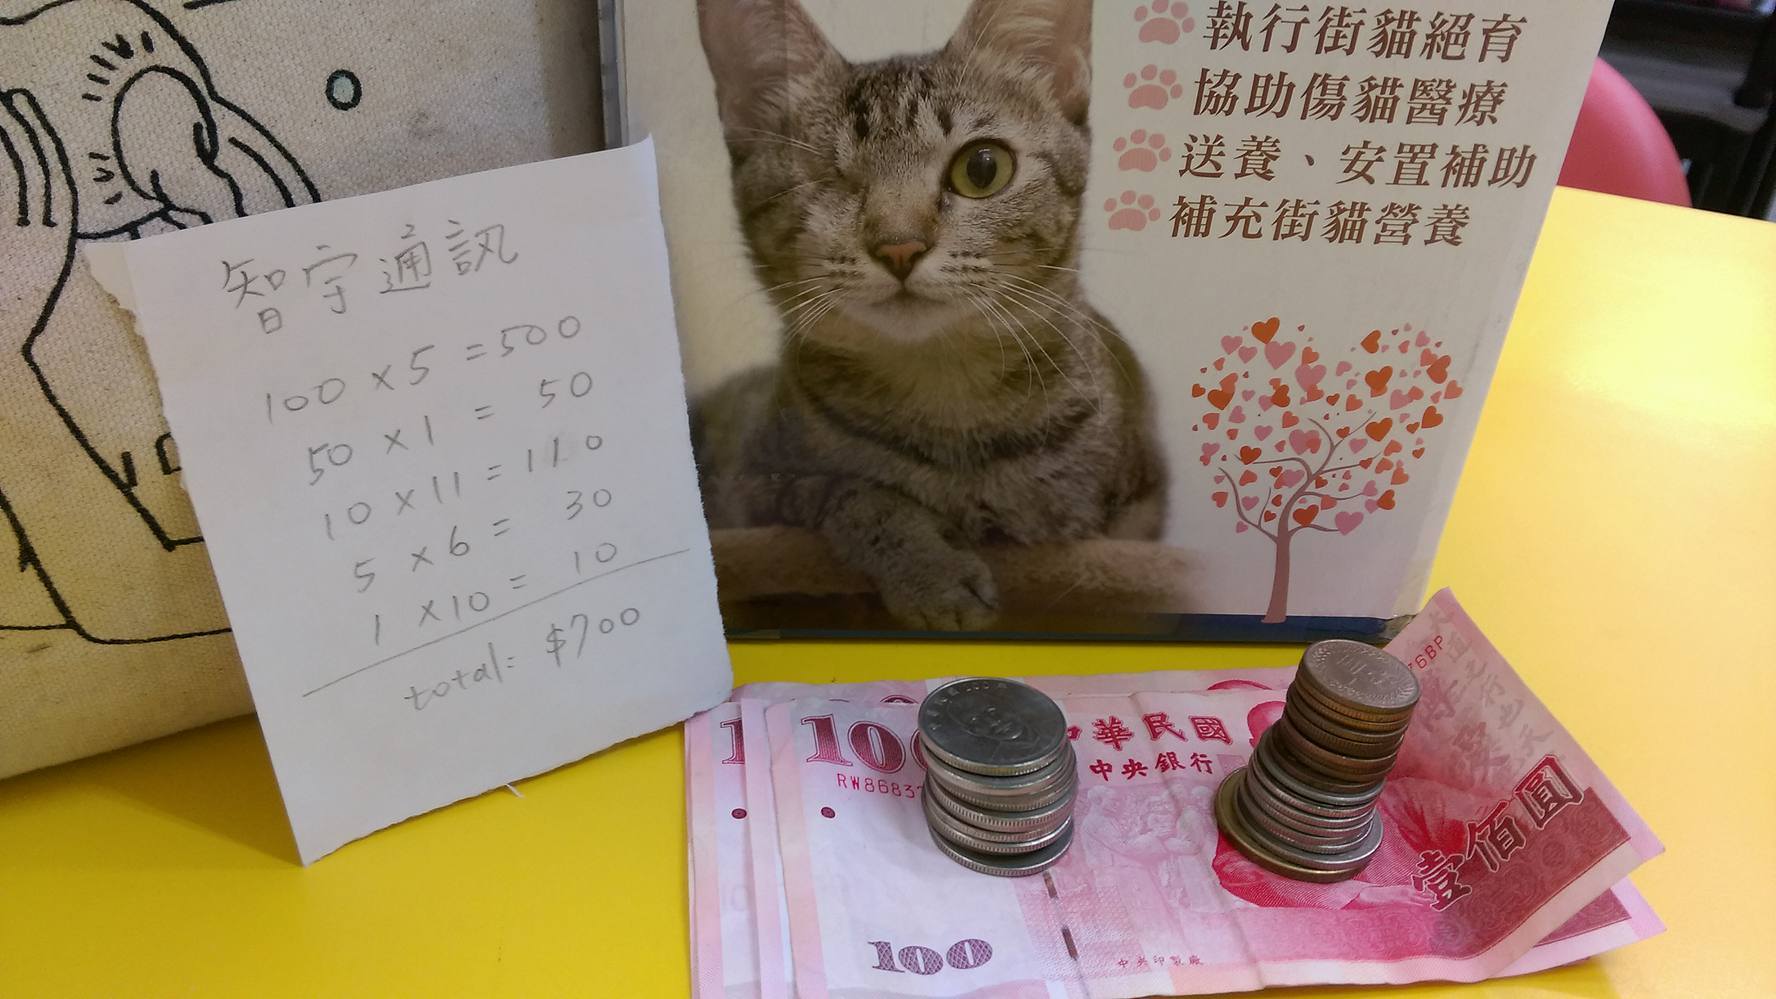 智宇通訊
100 × 5 = 500
50 × 1 = 50
10 × 11 = 110
5 × 6 = 30
1 × 10 = 10
total: $700
執行街貓絕育
協助傷貓醫療
送養、安置補助
補充街貓營養
中華民國
中央銀行
100
壹佰圓
100
中央印製廠